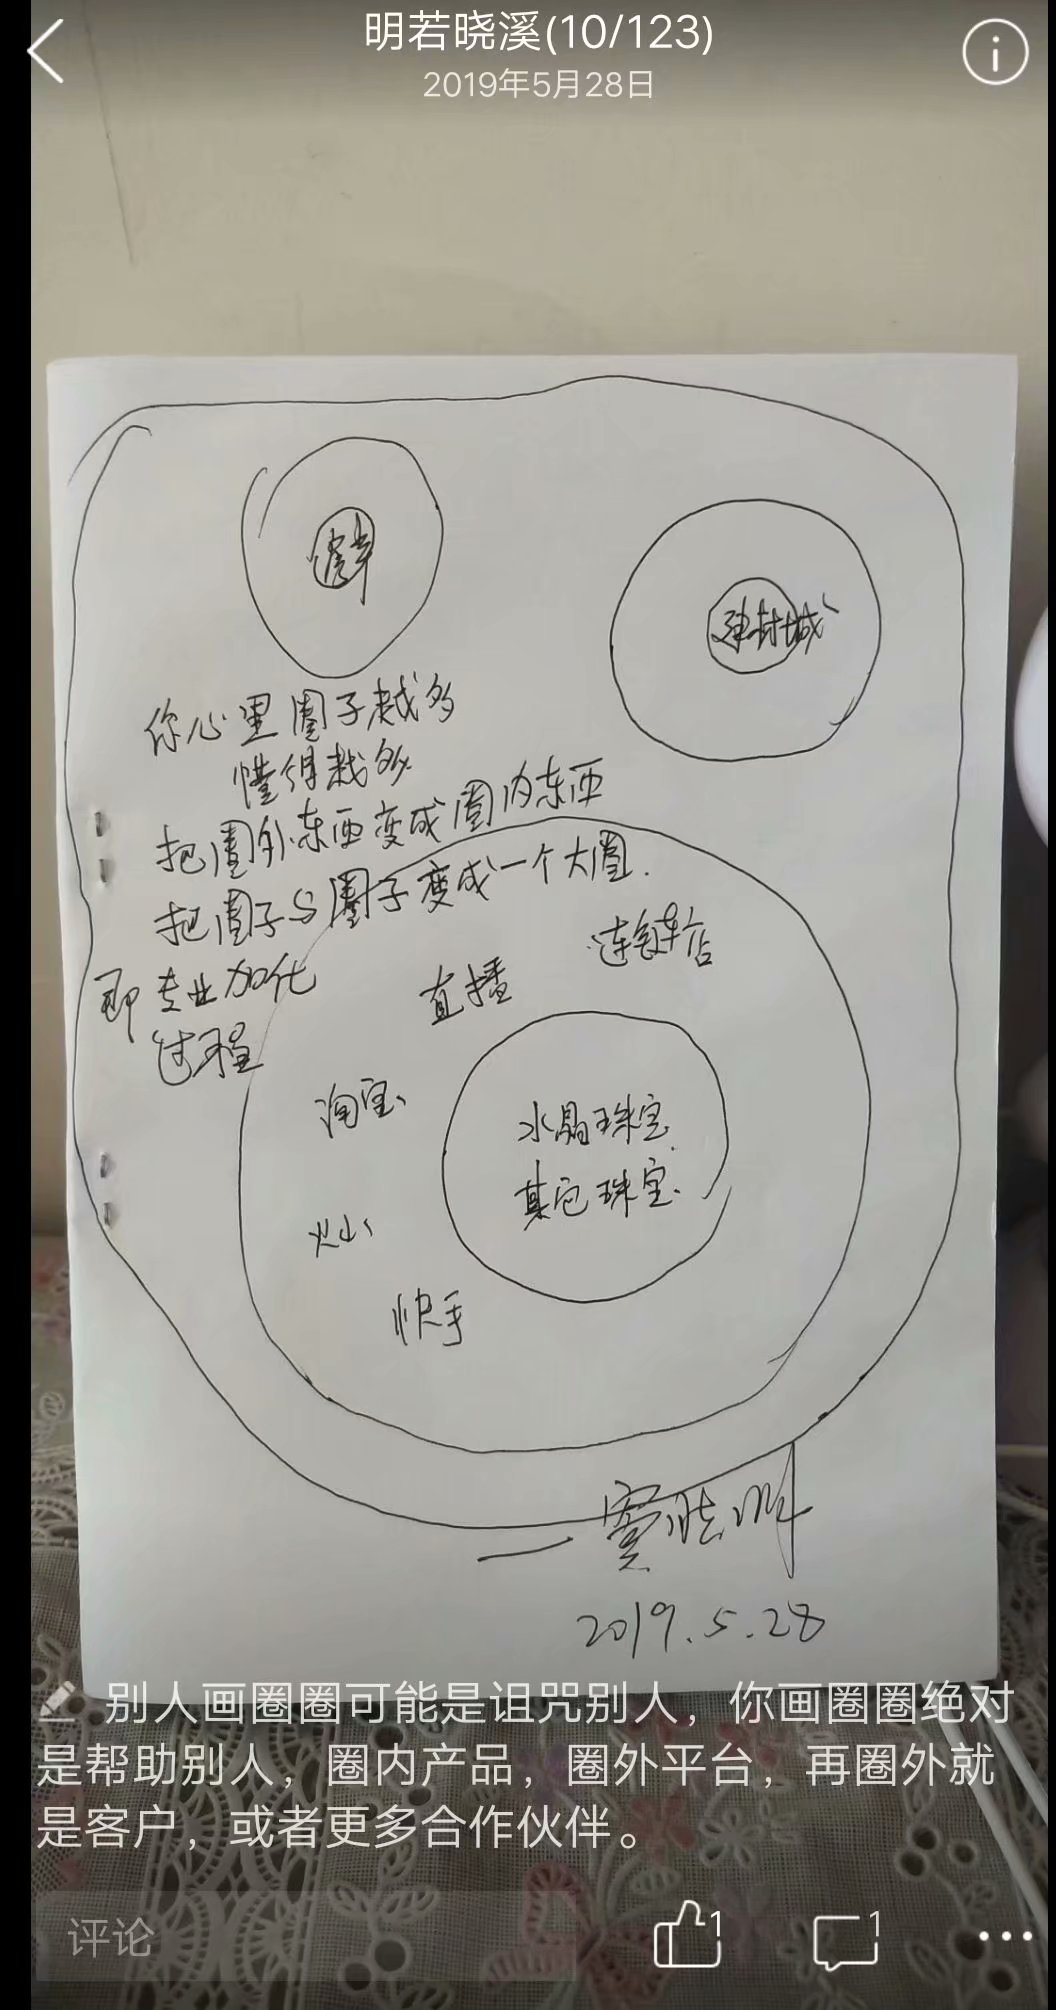 明若晓溪(10/123)
2019年5月28日
你心里圈子越多
懂得越多
把圈外东西变成圈内东西
把圈子与圈子变成一个大圈.
即专业加化
过程
连锁店
直播
淘宝
水晶珠宝
其它珠宝
火山
快手
2019.5.28
别人画圈圈可能是诅咒别人，你画圈圈绝对
是帮助别人，圈内产品，圈外平台，再圈外就
是客户，或者更多合作伙伴。
评论
1
1